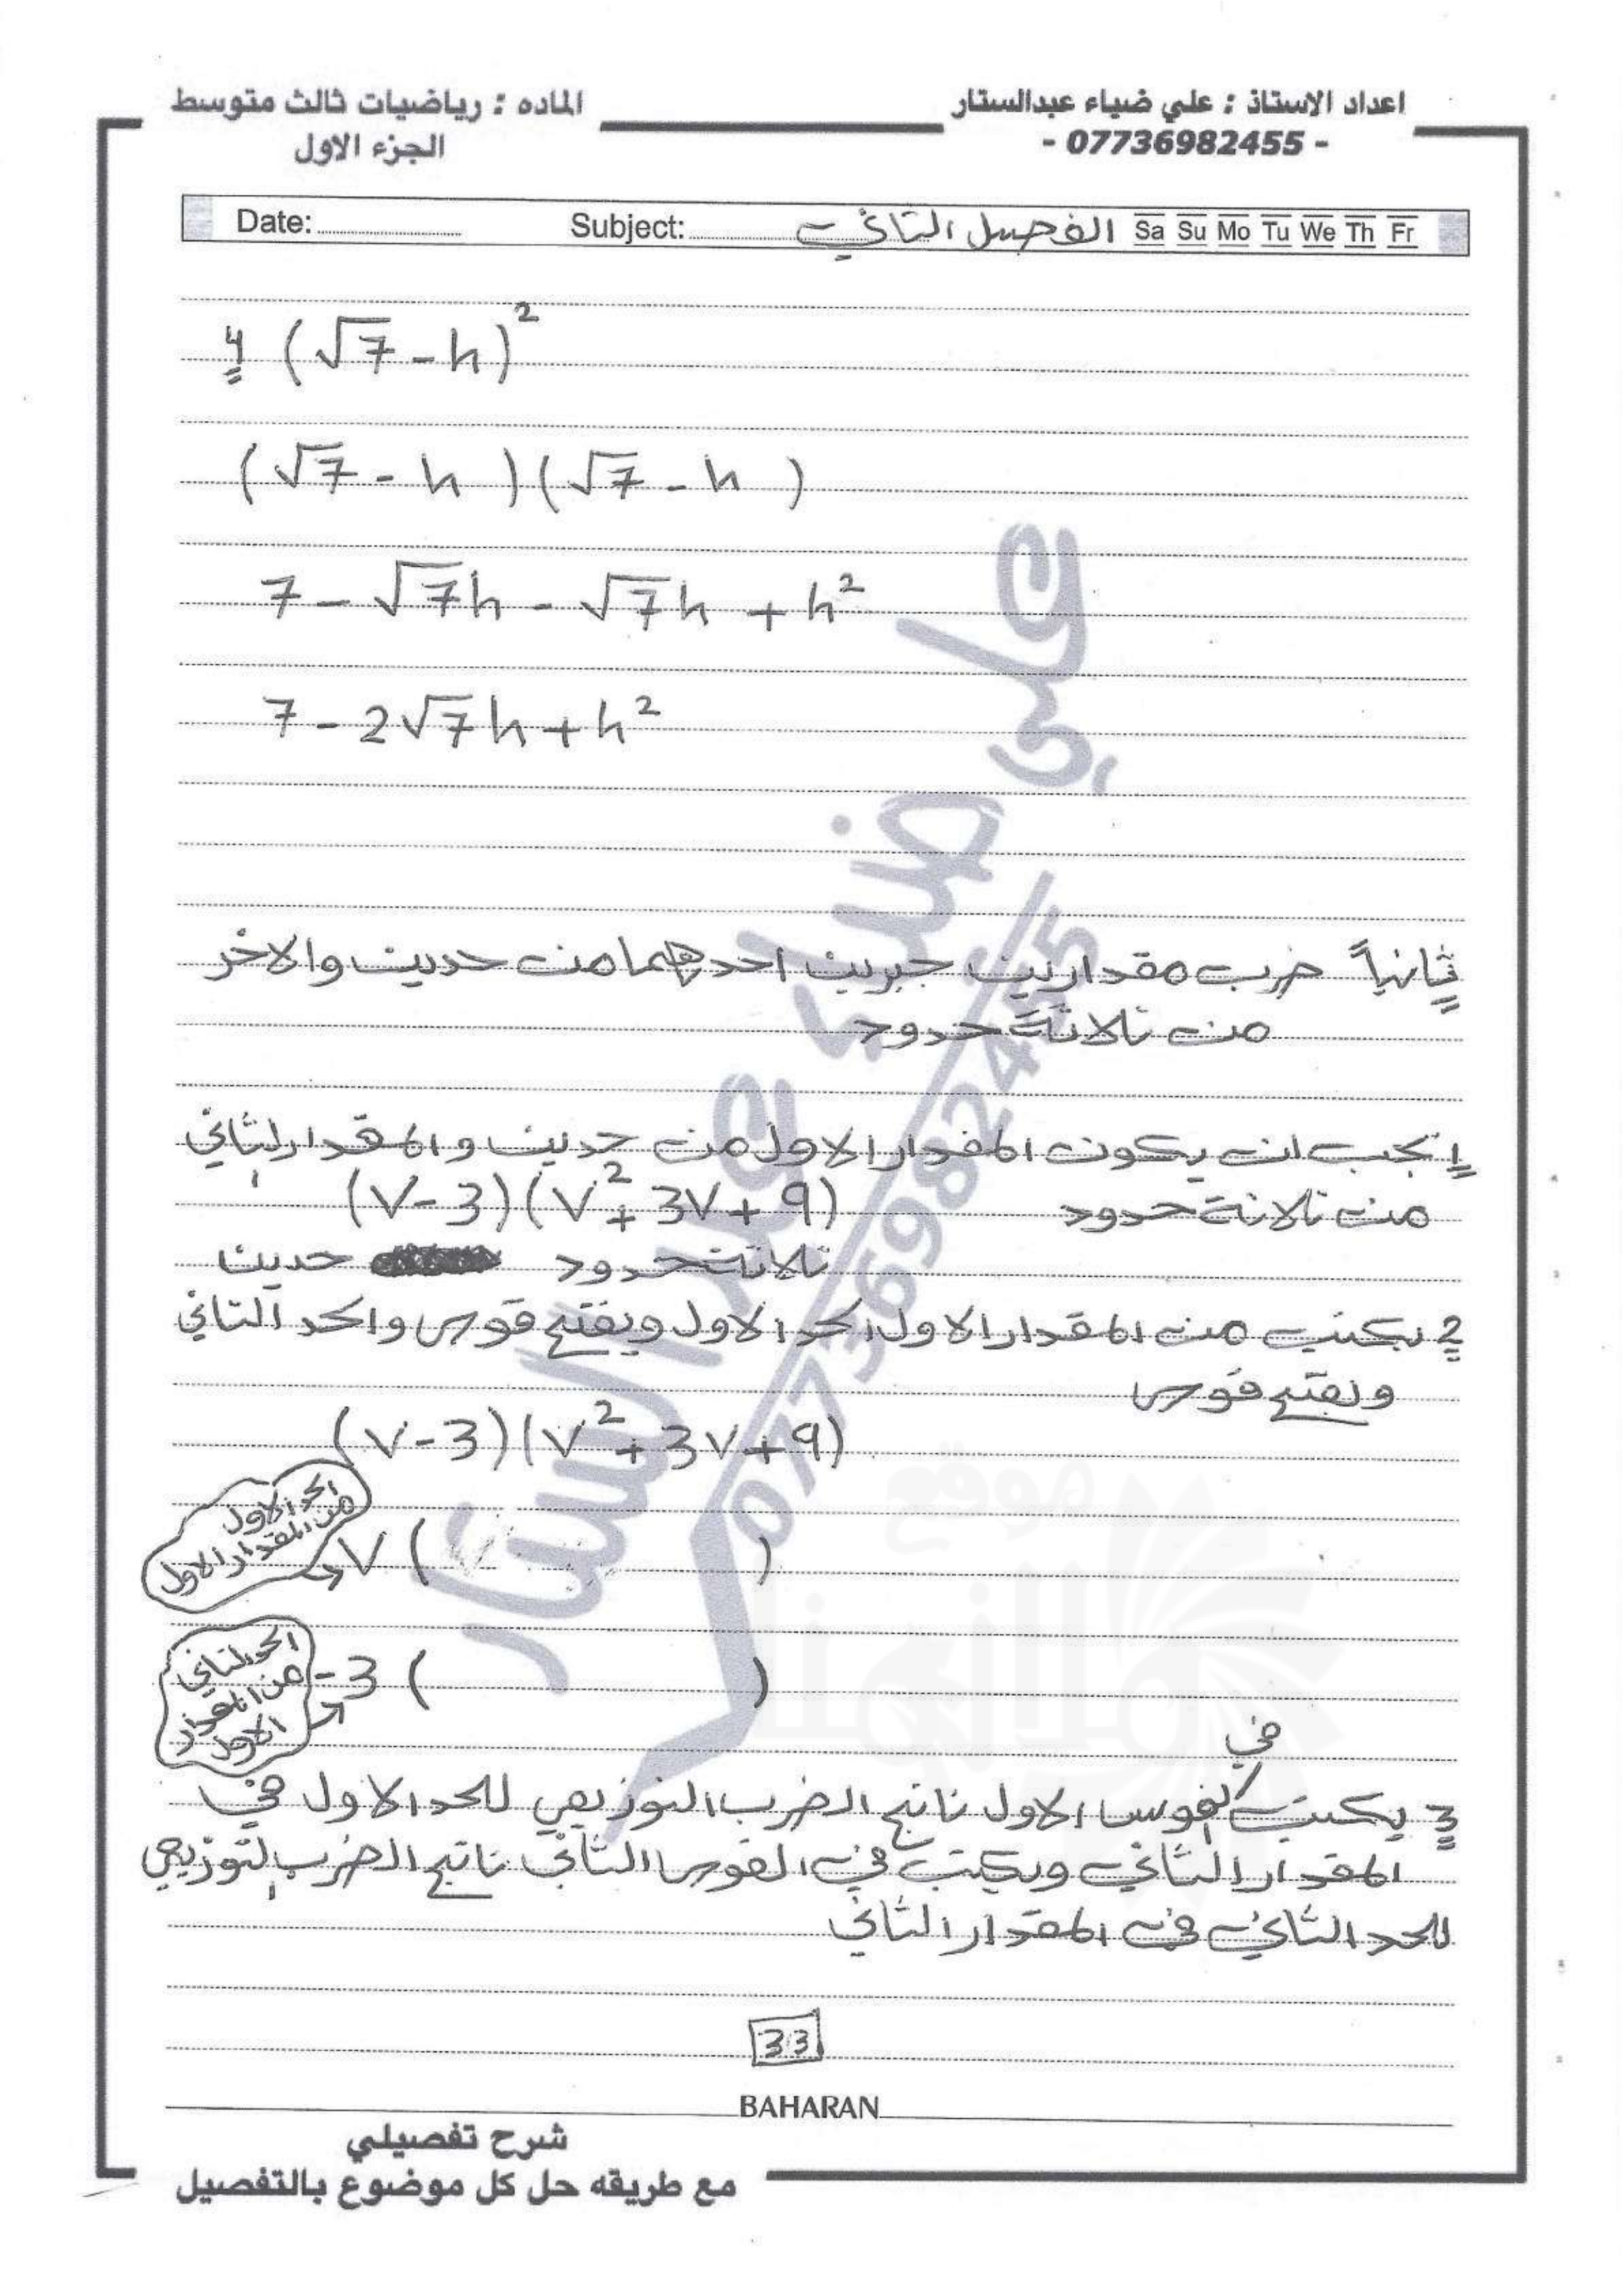 اعداد الاستاذ : علي ضياء عبدالستار
- 07736982455 -
الماده : رياضيات ثالث متوسط
الجزء الاول
Date: Subject: الفصل الثاني Sa Su Mo Tu We Th Fr
4 (√7 - h)²
(√7 - h)(√7 - h)
7 - √7h - √7h + h²
7 - 2√7h + h²
ثانياً ضرب مقدارين جبرين احدهما من حدين والاخر
من ثلاثة حدود
1 يجب ان يكون المقدار الاول من حدين والمقدار الثاني
من ثلاثة حدود (v-3)(v²+3v+9)
ثلاثة حدود حدين
2 نكتب من المقدار الاول الحد الاول ونفتح قوس والحد الثاني
ونفتح قوس
(v-3)(v²+3v+9)
الحد الاول
من المقدار الاول
v ( )
الحد الثاني
من المقدار
الاول
-3 ( )
في
3 يكتب القوس الاول ناتج الضرب التوزيعي للحد الاول في
المقدار الثاني ويكتب في القوس الثاني ناتج الضرب التوزيعي
للحد الثاني في المقدار الثاني
33
BAHARAN
شرح تفصيلي
مع طريقه حل كل موضوع بالتفصيل
علي ضياء عبد الستار
07736982455
موقع